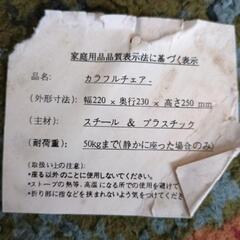 家庭用品品質表示法に基づく表示
品名: カラフルチェア-
(外形寸法): 幅220 x 奥行230 x 高さ250 mm
(主材): スチール & プラスチック
(耐荷重): 50kgまで(静かに座った場合のみ)
(取扱い上の注意):
*座る以外のことに使用しないでください。
*ストーブの熱等、高温になる所での使用を避けて
*折り部に指などを挟まれないよう気をつけてくだ